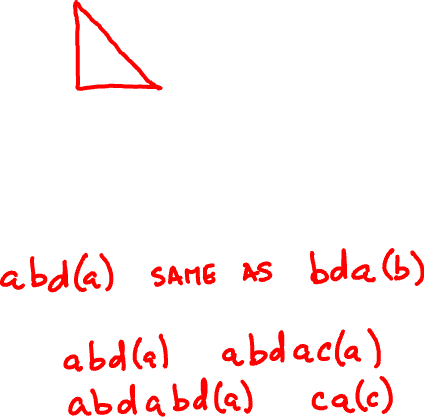 abd(a) SAME AS bda(b)
abd(a) abdac(a)
abdabd(a) ca(c)